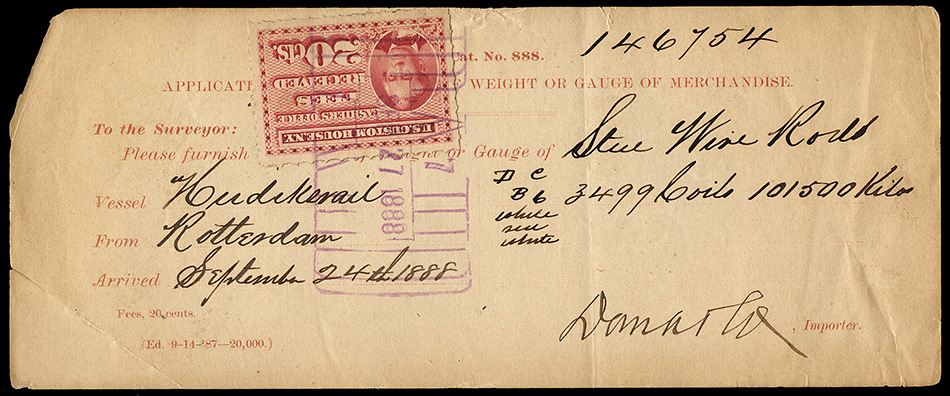 146754
Cat. No. 888.
APPLICATI WEIGHT OR GAUGE OF MERCHANDISE.
20 CTS.
RECEIVED
FEES
CASHIERS OFFICE
U.S. CUSTOM HOUSE N.Y.
To the Surveyor:
Please furnish or Gauge of Steel Wire Rods
D C
B 6 3499 Coils 101500 Kilos
white
white
Vessel
From Rotterdam
Arrived September 24th 1888
27 1888
Fees, 20 cents.
(Ed. 9-14-'87—20,000.)
, Importer.